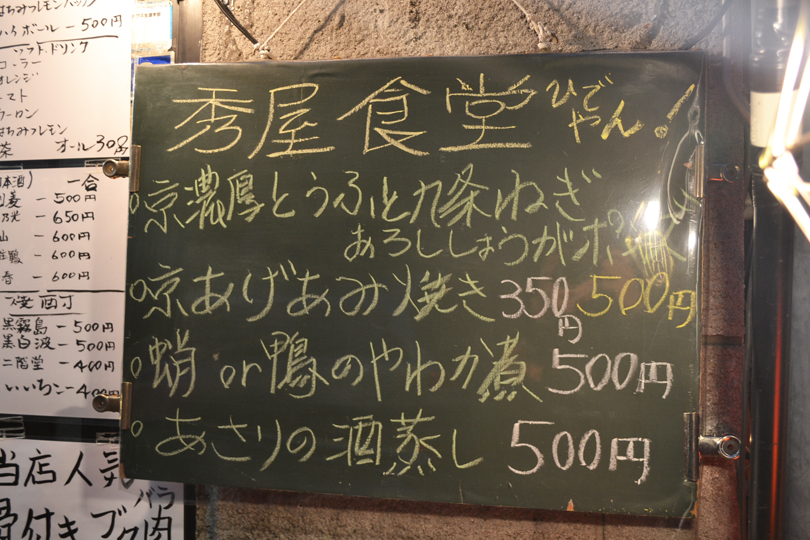 ハイボール - 500円
ソフトドリンク
コーラー
オレンジ
トマト
ウーロン
はちみつレモン
オール 300
一合
500円
650円
山 - 600円
600円
春 - 600円
焼酎
黒霧島 - 500円
黒白波 - 500円
二階堂 - 400円
いいちこ - 400円
当店人気
骨付きブタ肉
バラ
秀屋食堂 ひでやん!
京濃厚とうふと九条ねぎ
おろししょうがポン酢
京あげあみ焼き 350円 500円
蛸 or 鴨のやわか煮 500円
あさりの酒蒸し 500円